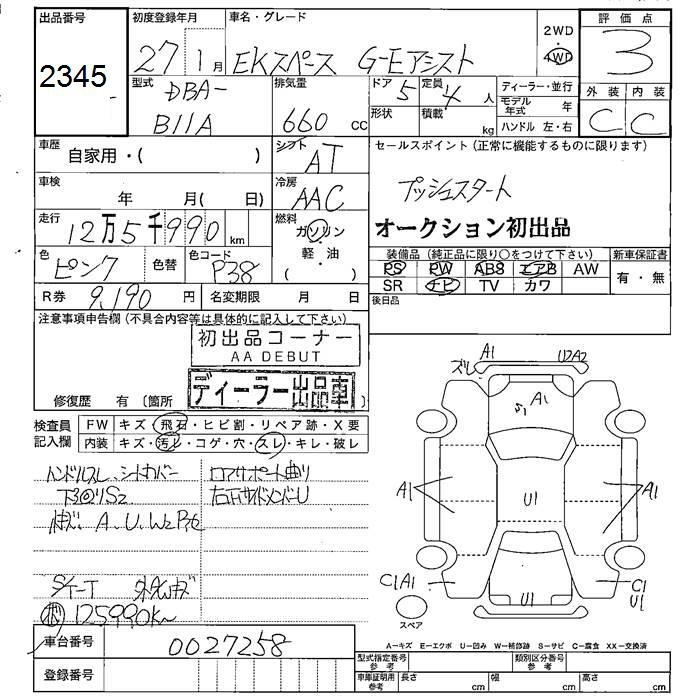 出品番号
2345
初度登録年月
27 1月
車名・グレード
EKスペース G-Eアシスト
2WD
4WD
評価点
3
型式
DBA-
B11A
排気量
660 cc
ドア 5
定員 4 人
形状
積載 kg
ディーラー・並行
モデル年式 年
ハンドル 左・右
外装 内装
C C
車歴
自家用・( )
シフト
AT
セールスポイント(正常に機能するものに限ります)
プッシュスタート
オークション初出品
車検
年 月( 日)
冷房
AAC
走行
12万5千990 km
燃料
ガソリン
・
軽・油
( )
色
ピンク
色替
色コード
P38
装備品(純正品に限り○をつけて下さい)
PS PW ABS エアB AW
SR ナビ TV カワ
新車保証書
有・無
R券 9,190 円
名変期限 月 日
後日品
注意事項申告欄(不具合内容等は具体的に記入して下さい)
初出品コーナー
AA DEBUT
ディーラー出品車
修復歴 有〔箇所 〕
検査員
記入欄
FW キズ・飛石・ヒビ割・リペア跡・X要
内装 キズ・汚レ・コゲ・穴・スレ・キレ・破レ
ハンドルスレ シートカバー
下回りS2
A.U.W2
ロアサポート曲り
右Fサイドメンバー U
S/T-T
125990K〜
ズレ A1 U2A2
A1
A1 U1 A1
C1A1 U1 C1
U1
スペア
A−キズ E−エクボ U−凹み W−補修跡 S−サビ C−腐食 XX−交換済
車台番号
0027258
登録番号
型式指定番号
参考
類別区分番号
参考
車庫証明用
参考
長さ cm
幅 cm
高さ cm